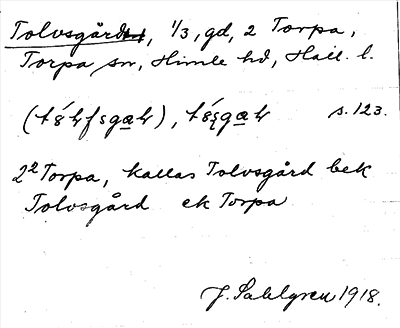 Tolvsgård, 1/3, gd, 2 Torpa,
Torpa sn, Himle hd, Hall. l.
s. 123.
2² Torpa, kallas Tolvsgård bek
Tolvsgård ek Torpa
J. Sahlgren 1918.